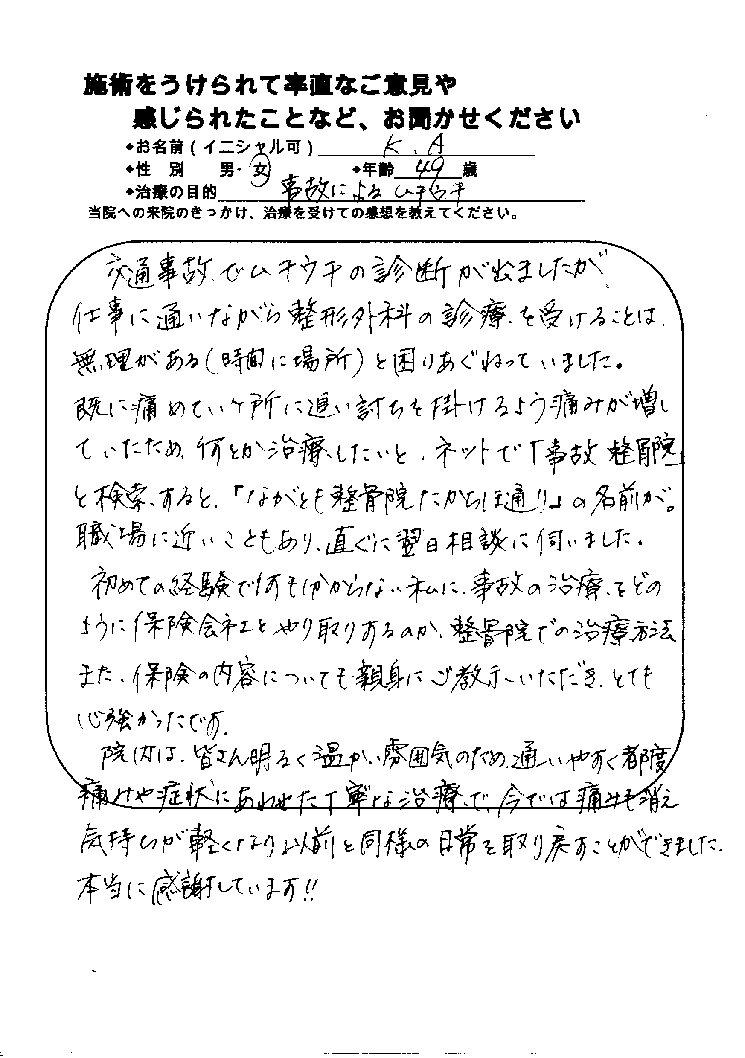 施術をうけられて率直なご意見や
感じられたことなど、お聞かせください
◆お名前(イニシャル可) K.A
◆性 別 男・女 ◆年齢 49 歳
◆治療の目的 事故によるムチウチ
当院への来院のきっかけ、治療を受けての感想を教えてください。
交通事故でムチウチの診断が出ましたが、
仕事に通いながら整形外科の診療を受けることは、
無理がある(時間に場所)と困りあぐねっていました。
既に痛めていヶ所に追い討ちを掛けるよう痛みが増し
ていたため、何とか治療したいと、ネットで「事故 整骨院」
と検索すると、「ながとも整骨院たからほ通り」の名前が。
職場に近いこともあり、直ぐに翌日相談に伺いました。
初めての経験で何も分からない私に、事故の治療をどの
ように保険会社とやり取りするのか、整骨院での治療方法
また、保険の内容についても親身にご教示いただき、とても
心強かったです。
院内は、皆さん明るく温かい雰囲気のため、通いやすく都度
痛みや症状にあわせた丁寧な治療で、今では痛みも消え
気持ちが軽くなり以前と同様の日常を取り戻すことができました。
本当に感謝しています!!